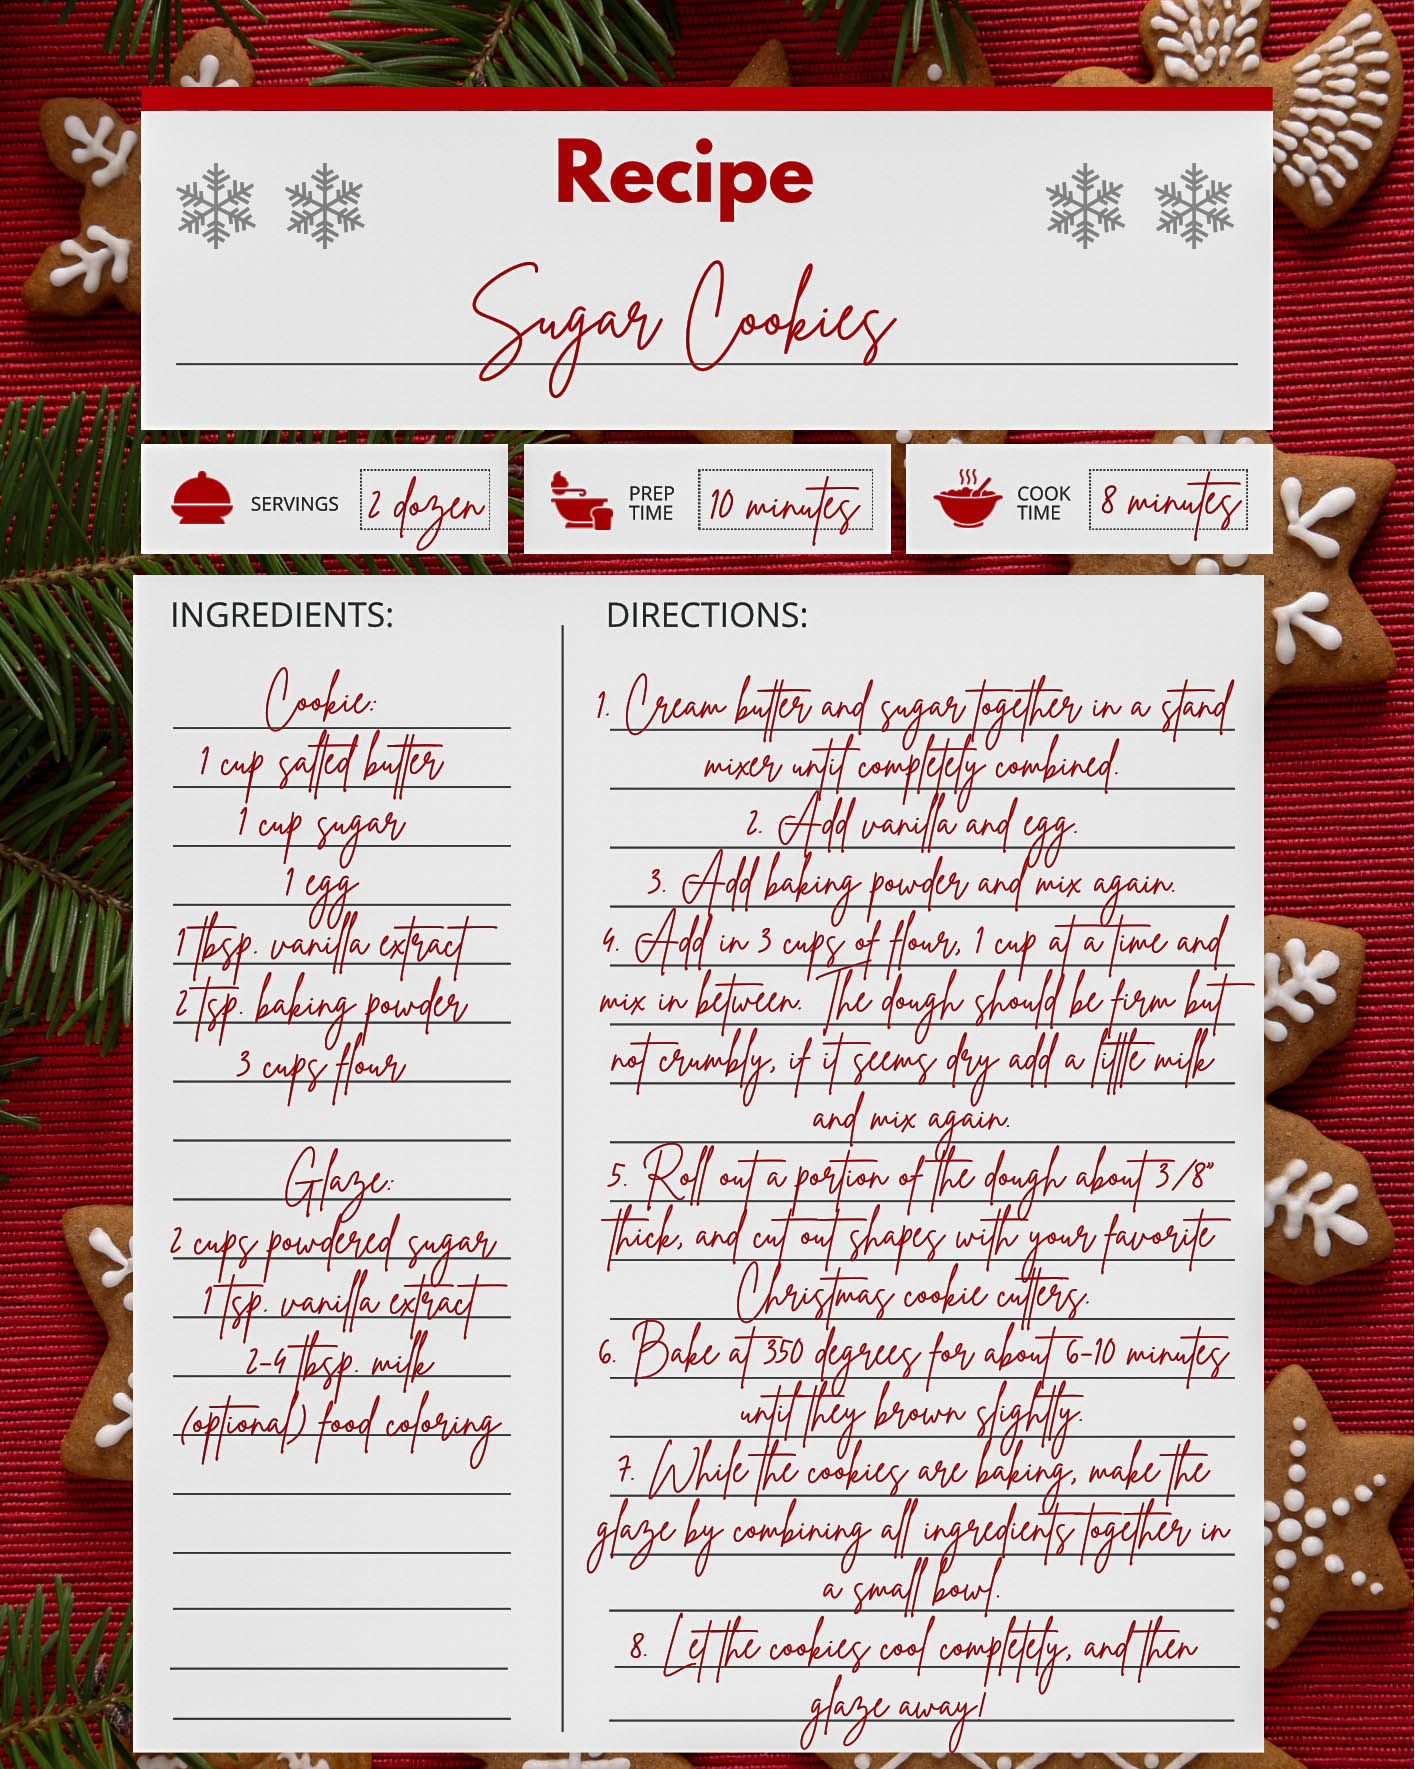 Recipe
Sugar Cookies
SERVINGS 2 dozen
PREP TIME 10 minutes
COOK TIME 8 minutes
INGREDIENTS:
Cookie:
1 cup salted butter
1 cup sugar
1 egg
1 tbsp. vanilla extract
2 tsp. baking powder
3 cups flour
Glaze:
2 cups powdered sugar
1 tsp. vanilla extract
2-4 tbsp. milk
(optional) food coloring
DIRECTIONS:
1. Cream butter and sugar together in a stand
mixer until completely combined.
2. Add vanilla and egg.
3. Add baking powder and mix again.
4. Add in 3 cups of flour, 1 cup at a time and
mix in between. The dough should be firm but
not crumbly, if it seems dry add a little milk
and mix again.
5. Roll out a portion of the dough about 3/8"
thick, and cut out shapes with your favorite
Christmas cookie cutters.
6. Bake at 350 degrees for about 6-10 minutes
until they brown slightly.
7. While the cookies are baking, make the
glaze by combining all ingredients together in
a small bowl.
8. Let the cookies cool completely, and then
glaze away!